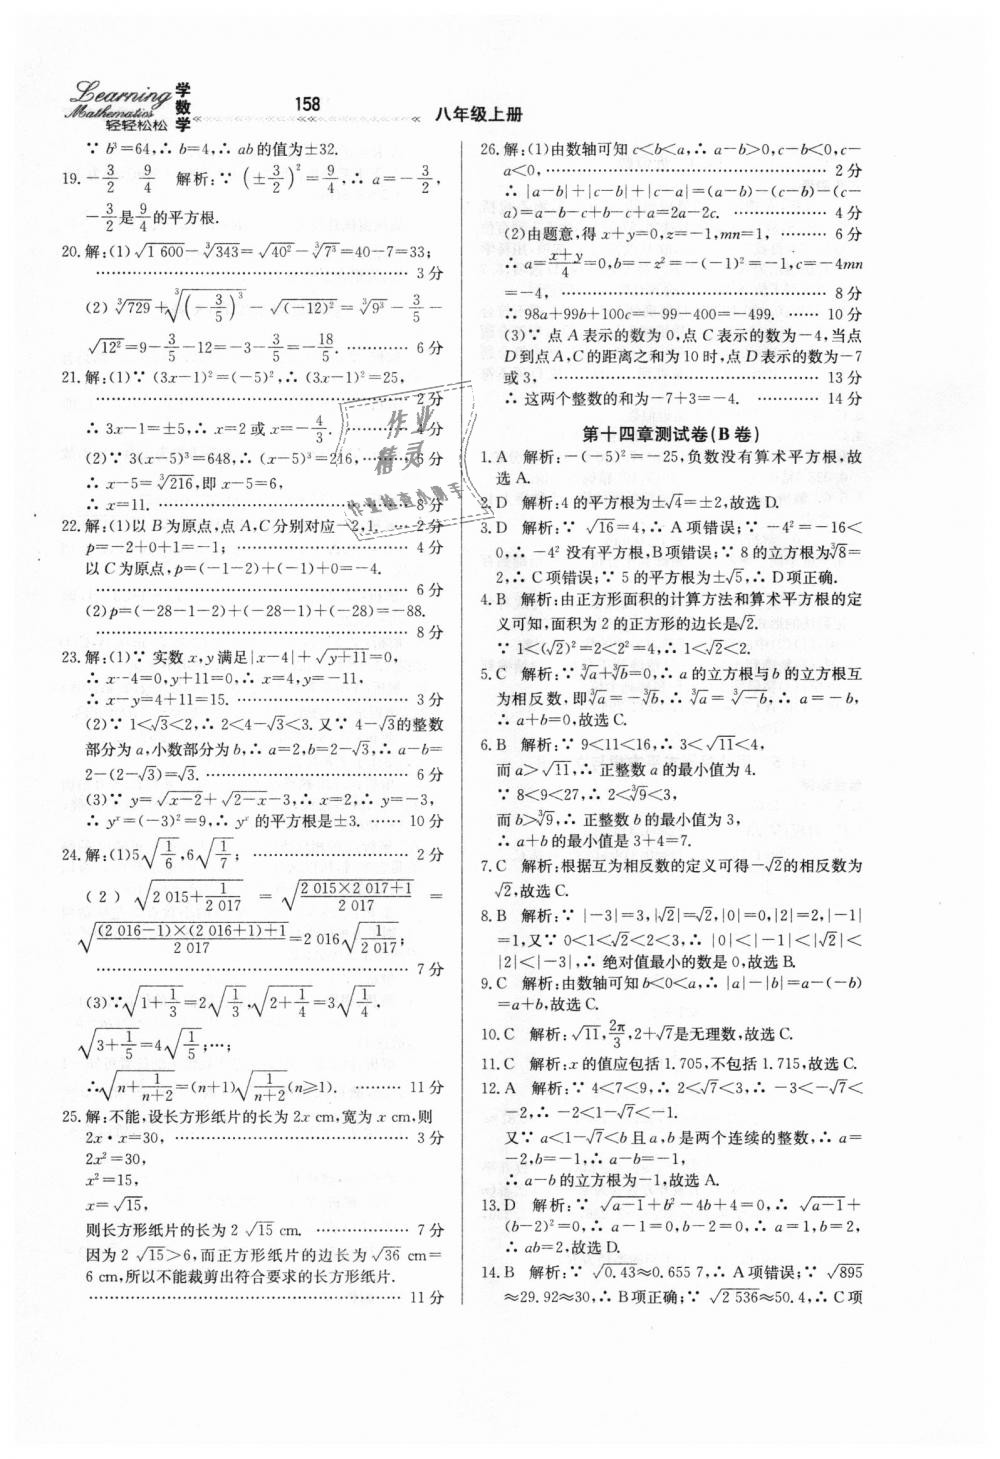 Learning
Mathematics
轻轻松松
学数学
158
八年级上册
∵ b³=64,∴ b=4,∴ ab 的值为±32.
19. -3/2  9/4  解析:∵ (±3/2)²=9/4,∴ a=-3/2,
-3/2是9/4的平方根.
20. 解:(1)√1 600-∛343=√40²-∛7³=40-7=33;
3 分
(2)∛729+∛(-3/5)³-√(-12)²=∛9³-3/5-
√12²=9-3/5-12=-3-3/5=-18/5. 6 分
21. 解:(1)∵ (3x-1)²=(-5)²,∴ (3x-1)²=25,
2 分
∴ 3x-1=±5,∴ x=2 或 x=-4/3. 4 分
(2)∵ 3(x-5)³=648,∴ (x-5)³=216, 6 分
∴ x-5=∛216,即 x-5=6,
∴ x=11. 8 分
22. 解:(1)以 B 为原点,点 A,C 分别对应-2,1. 2 分
p=-2+0+1=-1; 4 分
以 C 为原点,p=(-1-2)+(-1)+0=-4.
6 分
(2)p=(-28-1-2)+(-28-1)+(-28)=-88.
8 分
23. 解:(1)∵ 实数 x,y 满足|x-4|+√y+11=0,
∴ x-4=0,y+11=0,∴ x=4,y=-11,
∴ x-y=4+11=15. 3 分
(2)∵ 1<√3<2,∴ 2<4-√3<3. 又∵ 4-√3的整数
部分为 a,小数部分为 b,∴ a=2,b=2-√3,∴ a-b=
2-(2-√3)=√3. 6 分
(3)∵ y=√x-2+√2-x-3,∴ x=2,∴ y=-3,
∴ yˣ=(-3)²=9,∴ yˣ 的平方根是±3. 10 分
24. 解:(1)5√1/6,6√1/7; 2 分
(2) √2 015+1/2 017 = √(2 015×2 017+1)/2 017 =
√((2 016-1)×(2 016+1)+1)/2 017=2 016√1/2 017;
7 分
(3)∵√1+1/3=2√1/3,√2+1/4=3√1/4,
√3+1/5=4√1/5;…;
∴√n+1/n+2=(n+1)√1/n+2(n≥1). 11 分
25. 解:不能,设长方形纸片的长为 2x cm,宽为 x cm,则
2x·x=30, 3 分
2x²=30,
x²=15,
x=√15,
则长方形纸片的长为 2 √15 cm. 7 分
因为 2 √15>6,而正方形纸片的边长为√36 cm=
6 cm,所以不能裁剪出符合要求的长方形纸片.
11 分
26. 解:(1)由数轴可知 c<b<a,∴ a-b>0,c-b<0,c-
a<0, 2 分
∴ |a-b|+|c-b|+|c-a|=(a-b)-(c-b)-(c-
a)=a-b-c+b-c+a=2a-2c. 4 分
(2)由题意,得 x+y=0,z=-1,mn=1, 6 分
∴ a=x+y/4=0,b=-z²=-(-1)²=-1,c=-4mn
=-4, 8 分
∴ 98a+99b+100c=-99-400=-499. 10 分
(3)∵ 点 A 表示的数为 0,点 C 表示的数为-4,当点
D 到点 A,C 的距离之和为 10 时,点 D 表示的数为-7
或 3, 13 分
∴ 这两个整数的和为-7+3=-4. 14 分
第十四章测试卷(B 卷)
1. A 解析:-(-5)²=-25,负数没有算术平方根,故
选 A.
2. D 解析:4 的平方根为±√4=±2,故选 D.
3. D 解析:∵ √16=4,∴ A 项错误;∵ -4²=-16<
0,∴ -4² 没有平方根,B 项错误;∵ 8 的立方根为∛8=
2,∴ C 项错误;∵ 5 的平方根为±√5,∴ D 项正确.
4. B 解析:由正方形面积的计算方法和算术平方根的定
义可知,面积为 2 的正方形的边长是√2.
∵ 1<(√2)²=2<2²=4,∴ 1<√2<2.
5. C 解析:∵ ∛a+∛b=0,∴ a 的立方根与 b 的立方根互
为相反数,即∛a=-∛b,∴ ∛a=∛-b,∴ a=-b,
∴ a+b=0,故选 C.
6. B 解析:∵ 9<11<16,∴ 3<√11<4,
而 a>√11,∴ 正整数 a 的最小值为 4.
∵ 8<9<27,∴ 2<∛9<3,
而 b>∛9,∴ 正整数 b 的最小值为 3,
∴ a+b 的最小值是 3+4=7.
7. C 解析:根据互为相反数的定义可得-√2的相反数为
√2,故选 C.
8. B 解析:∵ |-3|=3,|√2|=√2,|0|=0,|2|=2,|-1|
=1,又∵ 0<1<√2<2<3,∴ |0|<|-1|<|√2|<
|2|<|-3|,∴ 绝对值最小的数是 0,故选 B.
9. C 解析:由数轴可知 b<0<a,∴ |a|-|b|=a-(-b)
=a+b,故选 C.
10. C 解析:√11,2π/3,2+√7是无理数,故选 C.
11. C 解析:x 的值应包括 1.705,不包括 1.715,故选 C.
12. A 解析:∵ 4<7<9,∴ 2<√7<3,∴ -3<-√7<
-2,∴ -2<1-√7<-1.
又∵ a<1-√7<b 且 a,b 是两个连续的整数,∴ a=
-2,b=-1,∴ a-b=-1,
∴ a-b 的立方根为-1,故选 A.
13. D 解析:∵ √a-1+b²-4b+4=0,∴ √a-1+
(b-2)²=0,∴ a-1=0,b-2=0,∴ a=1,b=2,
∴ ab=2,故选 D.
14. B 解析:∵ √0.43≈0.655 7,∴ A 项错误;∵ √895
≈29.92≈30,∴ B 项正确;∵ √2 536≈50.4,∴ C 项
作业
精灵
作业检查小助手